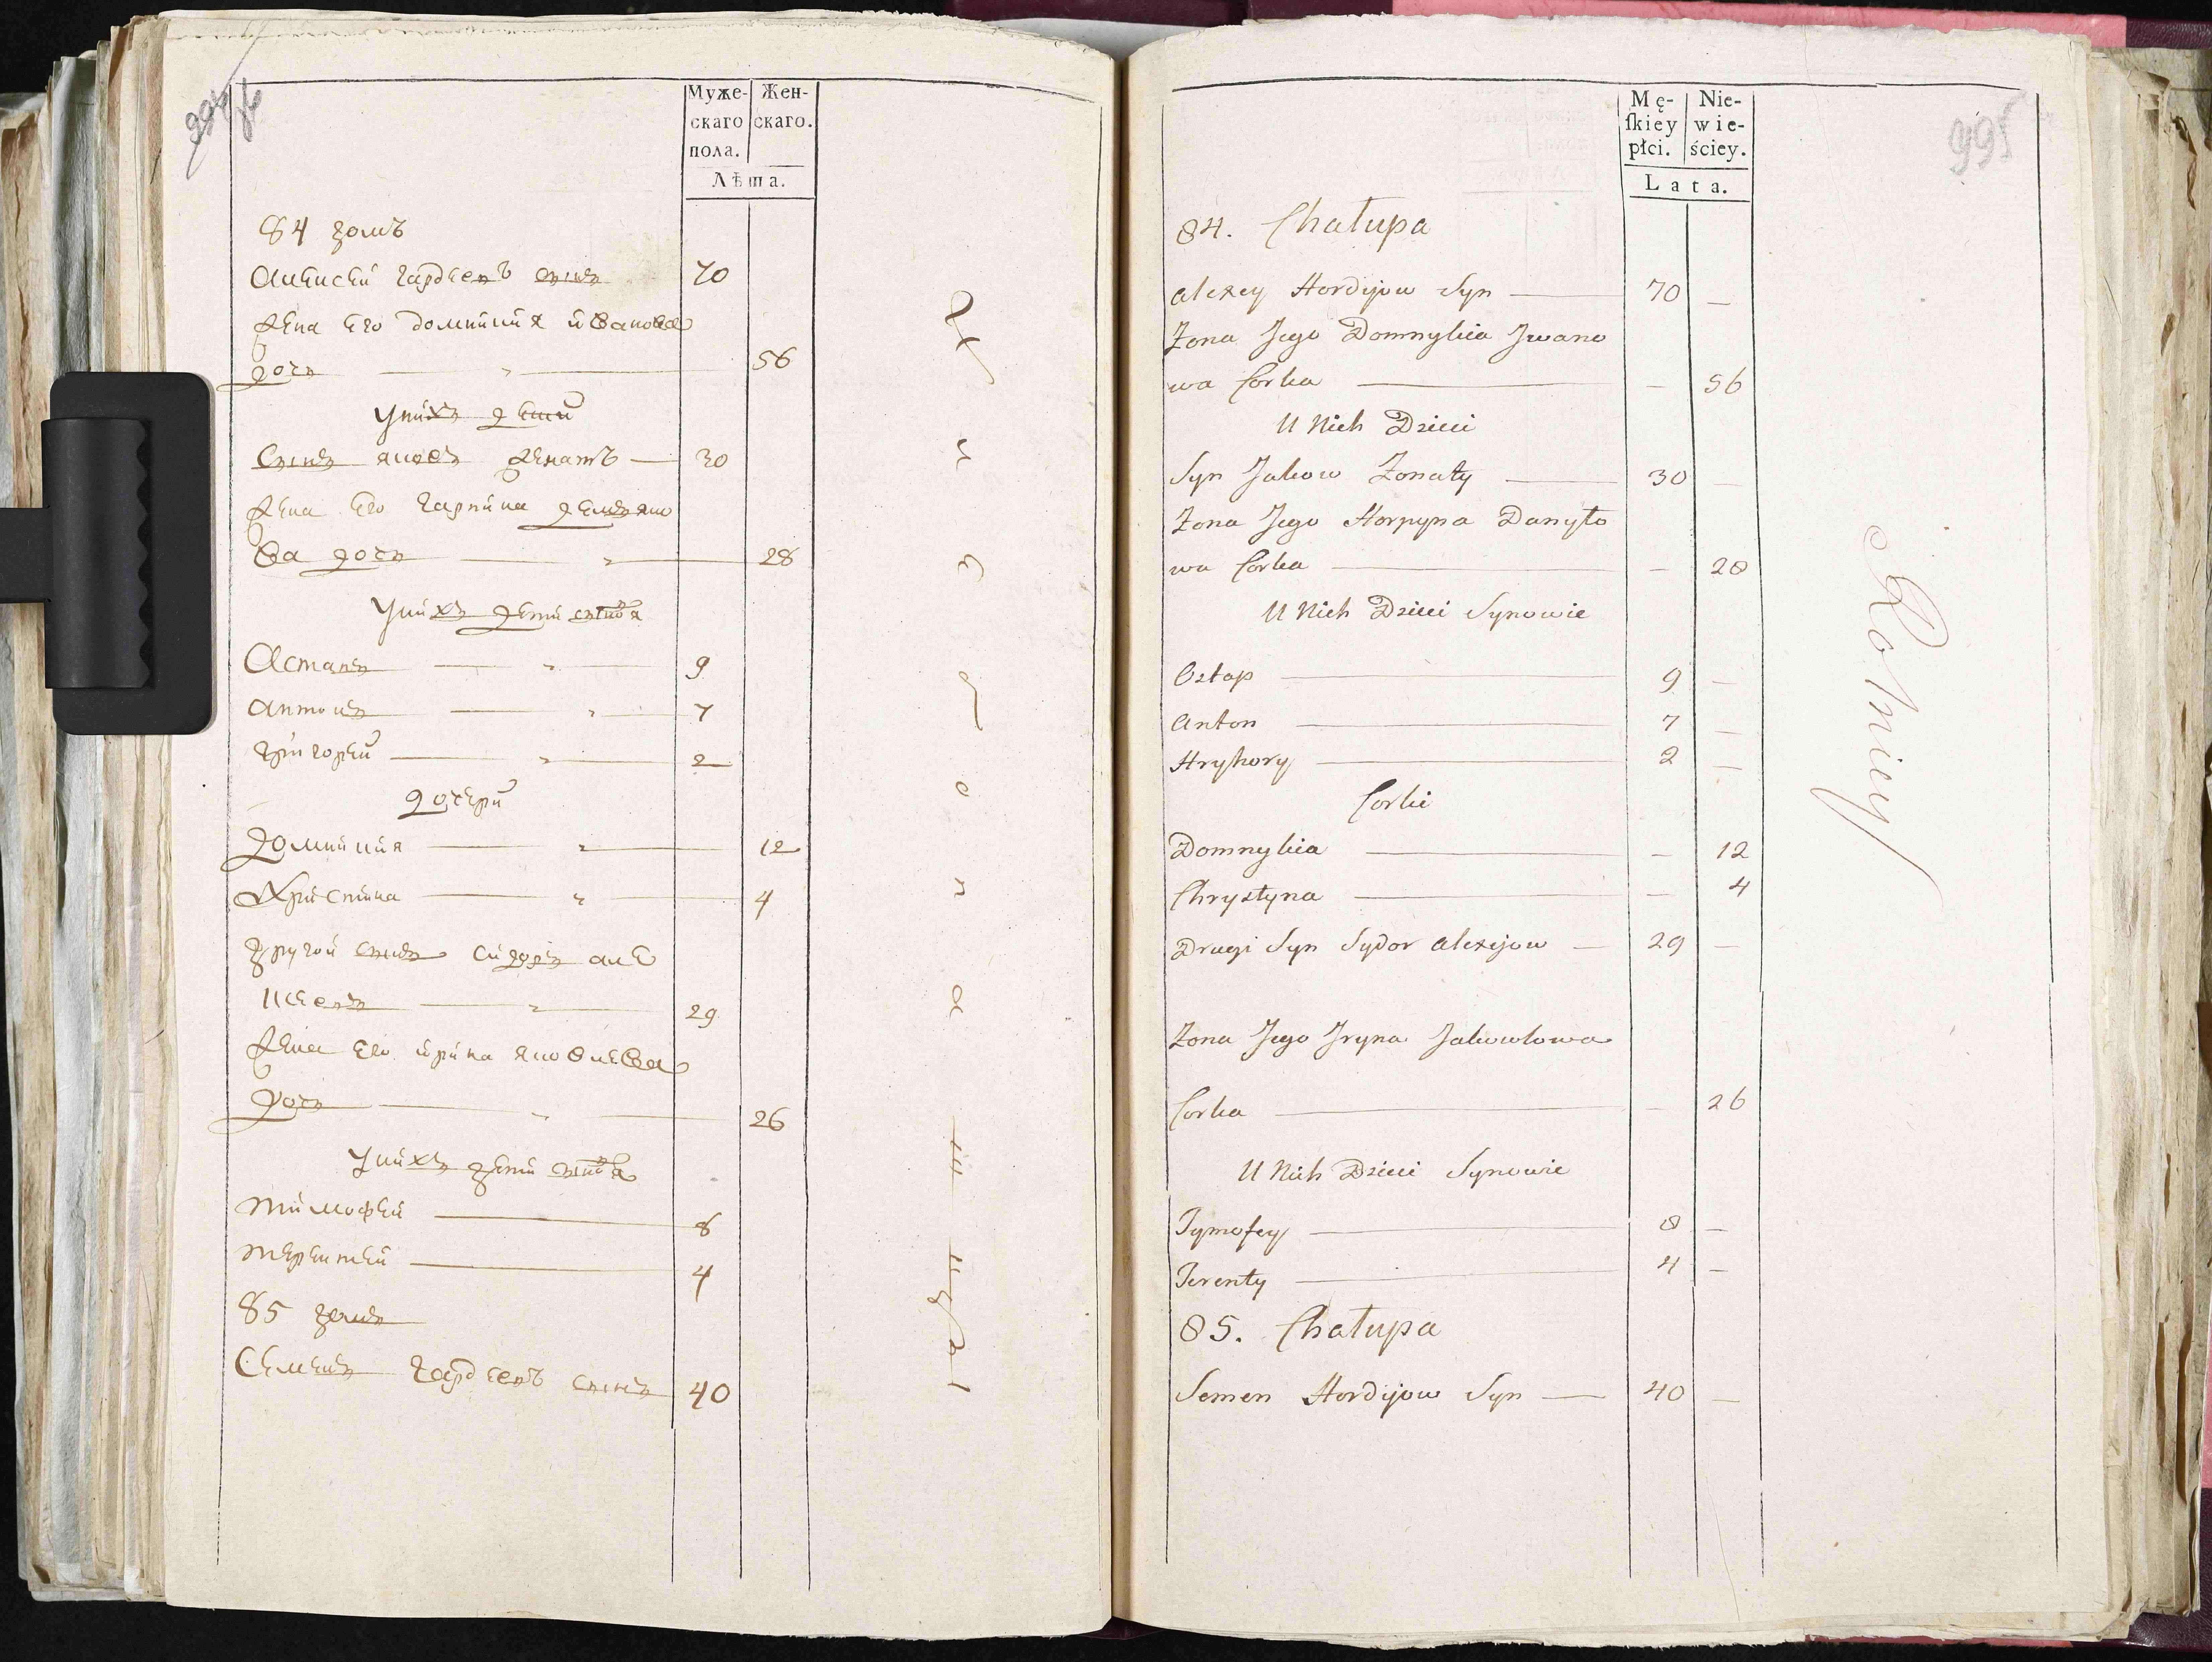 Муже-
скаго
пола.
Жен-
скаго.
Лѣта.
84 домъ
Алексей гардеевъ сынъ 70
жена его домникия ивановa
дочь 56
у них дети
Сынъ яковъ женатъ 30
жена его гарпина демъяно
ва дочь 28
у нихъ дети сыновя
Астапъ 9
антонъ 7
григорей 2
дочери
домникия 12
христина 4
другой сынъ сидоръ але
ксеевъ 29
жена его ирина яковлева
дочь 26
у нихъ дети сыновя
тимофей 8
терентей 4
85 домъ
Семенъ гардеевъ сынъ 40
995
Mę-
ſkiey
płci.
Nie-
wie-
ściey.
Lata.
84. Chałupa
Alexey Hordijow Syn — 70 —
Żona Jego Domnykia Jwano
wa Corka — — 56
U Nich Dzieci
Syn Jakow Żonaty — 30 —
Żona Jego Horpyna Danyło
wa Corka — — 28
U Nich Dzieci Synowie
Ostap — 9 —
Anton — 7 —
Hryhory — 2 —
Corki
Domnykia — — 12
Chrystyna — — 4
Drugi Syn Sydor Alexijow — 29 —
Żona Jego Jryna Jakowlowa
Corka — — 26
U Nich Dzieci Synowie
Tymofey — 8 —
Terenty — 4 —
85. Chałupa
Semen Hordijow Syn — 40 —
Rolniey